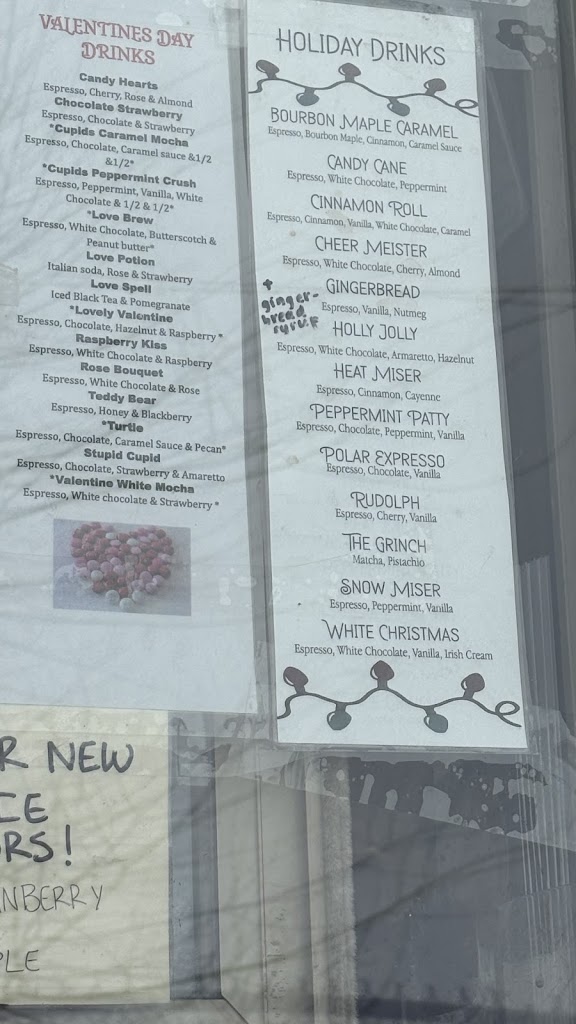 VALENTINES DAY
DRINKS
Candy Hearts
Espresso, Cherry, Rose & Almond
Chocolate Strawberry
Espresso, Chocolate & Strawberry
*Cupids Caramel Mocha
Espresso, Chocolate, Caramel sauce &1/2
&1/2*
*Cupids Peppermint Crush
Espresso, Peppermint, Vanilla, White
Chocolate & 1/2 & 1/2*
*Love Brew
Espresso, White Chocolate, Butterscotch &
Peanut butter*
Love Potion
Italian soda, Rose & Strawberry
Love Spell
Iced Black Tea & Pomegranate
*Lovely Valentine
Espresso, Chocolate, Hazelnut & Raspberry *
Raspberry Kiss
Espresso, White Chocolate & Raspberry
Rose Bouquet
Espresso, White Chocolate & Rose
Teddy Bear
Espresso, Honey & Blackberry
*Turtle
Espresso, Chocolate, Caramel Sauce & Pecan*
Stupid Cupid
Espresso, Chocolate, Strawberry & Amaretto
*Valentine White Mocha
Espresso, White chocolate & Strawberry *
HOLIDAY DRINKS
BOURBON MAPLE CARAMEL
Espresso, Bourbon Maple, Cinnamon, Caramel Sauce
CANDY CANE
Espresso, White Chocolate, Peppermint
CINNAMON ROLL
Espresso, Cinnamon, Vanilla, White Chocolate, Caramel
CHEER MEISTER
Espresso, White Chocolate, Cherry, Almond
GINGERBREAD
Espresso, Vanilla, Nutmeg
+
ginger-
bread
syrup
HOLLY JOLLY
Espresso, White Chocolate, Armaretto, Hazelnut
HEAT MISER
Espresso, Cinnamon, Cayenne
PEPPERMINT PATTY
Espresso, Chocolate, Peppermint, Vanilla
POLAR EXPRESSO
Espresso, Chocolate, Vanilla
RUDOLPH
Espresso, Cherry, Vanilla
THE GRINCH
Matcha, Pistachio
SNOW MISER
Espresso, Peppermint, Vanilla
WHITE CHRISTMAS
Espresso, White Chocolate, Vanilla, Irish Cream
R NEW
CE
RS!
NBERRY
PLE